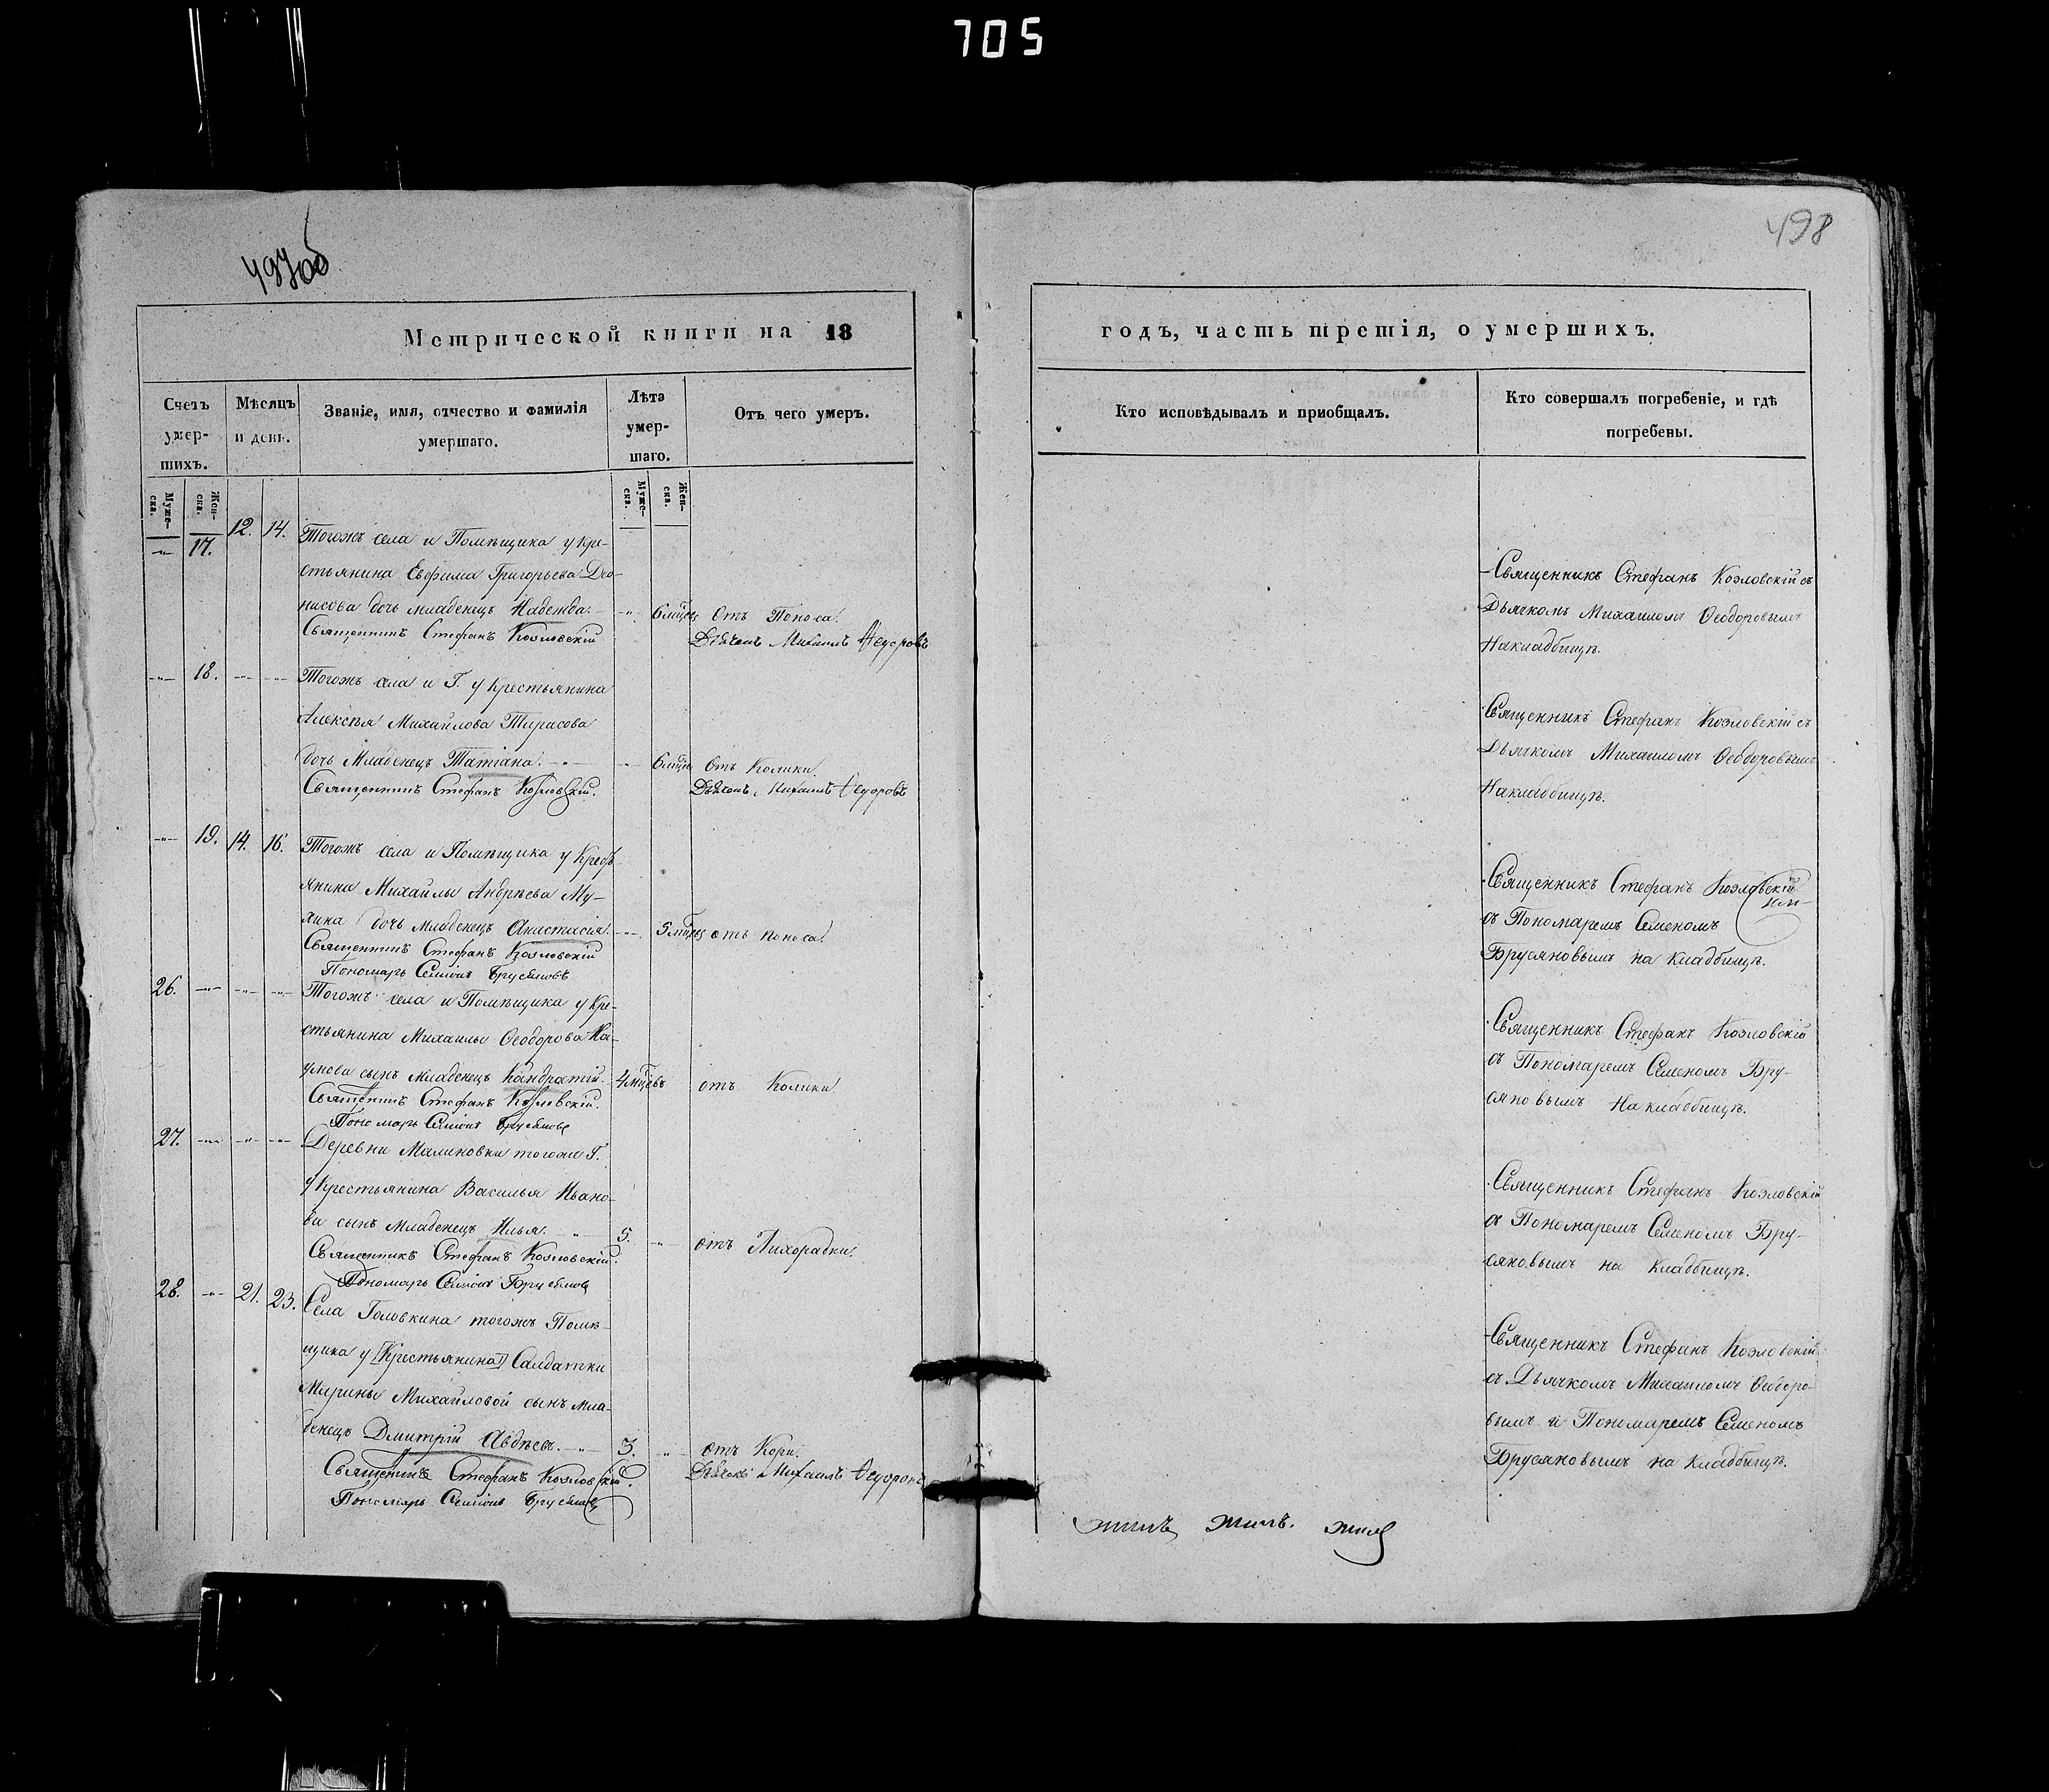 705
497об
498
Метрической книги на 18
годъ, часть третія, о умершихъ.
Счетъ умер-шихъ.
Мѣсяцъ и день.
Званіе, имя, отчество и фамилія умершаго.
Лѣта умер-шаго.
Отъ чего умеръ.
Кто исповѣдывалъ и приобщалъ.
Кто совершалъ погребеніе, и гдѣ погребены.
Муже-ска.
Жен-ска.
Муже-ска.
Жен-ска.
17. 12. 14. Тогожъ села и Помѣщика у Кре-
стьянина Евфима Григорьева Део-
нисова дочь младенецъ Надежда. 6 мцев Отъ Поноса.
Священникъ Стефанъ Козловскій
Дьячекъ Михаилъ Ѳедоровъ
Священникъ Стефанъ Козловскій съ
Дьячкомъ Михаиломъ Ѳеодоровымъ
На кладбищѣ.
18. Тогожъ села и Г. у Крестьянина
Алексѣя Михайлова Тирасова
дочь Младенецъ Татіана. 6 мцев Отъ Колики.
Священникъ Стефанъ Козловскій.
Дьячекъ Михаилъ Ѳедоровъ
Священникъ Стефанъ Козловскій съ
Дьячкомъ Михаиломъ Ѳеодоровымъ
На кладбищѣ.
19. 14. 16. Тогожъ села и Помѣщика у Крестъ-
янина Михайлы Андрѣева Му-
хина дочь младенецъ Анастасія. 5 мцев отъ поноса.
Священникъ Стефанъ Козловскій
Пономарь Семіонъ Брусяновъ
Священникъ Стефанъ Козловскій
съ Пономаремъ Семеномъ
Брусяновымъ на кладбищѣ.
26. Тогожъ села и Помѣщика у Кре-
стьянина Михайлы Ѳеодорова На-
умова сынъ младенецъ Кандратій. 4 мцевъ отъ Колики
Священникъ Стефанъ Козловскій.
Пономарь Семіонъ Брусяновъ
Священникъ Стефанъ Козловскій
съ Пономаремъ Семеномъ Бру-
сяновымъ На кладбищѣ.
27. Деревни Малиновки тогоже Г.
у Крестьянина Василья Ивано-
ва сынъ младенецъ Илья. 5. отъ Лихорадки.
Священникъ Стефанъ Козловскій.
Пономарь Семіонъ Брусяновъ
Священникъ Стефанъ Козловскій
съ Пономаремъ Семеномъ Бру-
сяновымъ на кладбищѣ.
28. 21. 23. Села Головкина тогожъ Помѣ-
щика у [Крестьянина] Салдатки
Марины Михайловой сынъ мла-
денецъ Дмитрій Авдѣевъ. 3. отъ Кори.
Священникъ Стефанъ Козловскій.
Дьячекъ Михаилъ Ѳедоровъ
Пономарь Семіонъ Брусяновъ
Священникъ Стефанъ Козловскій
съ Дьячкомъ Михаиломъ Ѳеодоро-
вымъ и Пономаремъ Семеномъ
Брусяновымъ на кладбищѣ.